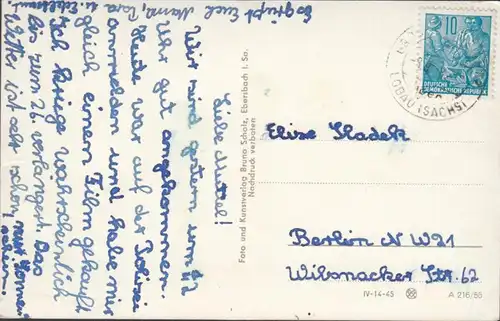 Es grüßt Euch Mama, Papa u.
Liebe Muttel!
Wir sind gestern um 12
Uhr gut angekommen.
Heute war auf der Polizei
anmelden und habe mir
gleich einen Film gekauft
Ich kriege wahrscheinlich
bis zum 26. verlängert. Das
Wetter ist sehr schön,
nur Sonnen-
schein.
Foto und Kunstverlag Bruno Scholz, Ebersbach i. Sa.
Nachdruck verboten
10
DEUTSCHE
DEMOKRATISCHE REPUBLIK
LÖBAU (SACHS)
Elise
Berlin N W21
Wilsnacker Str. 62
IV-14-45
A 216/55